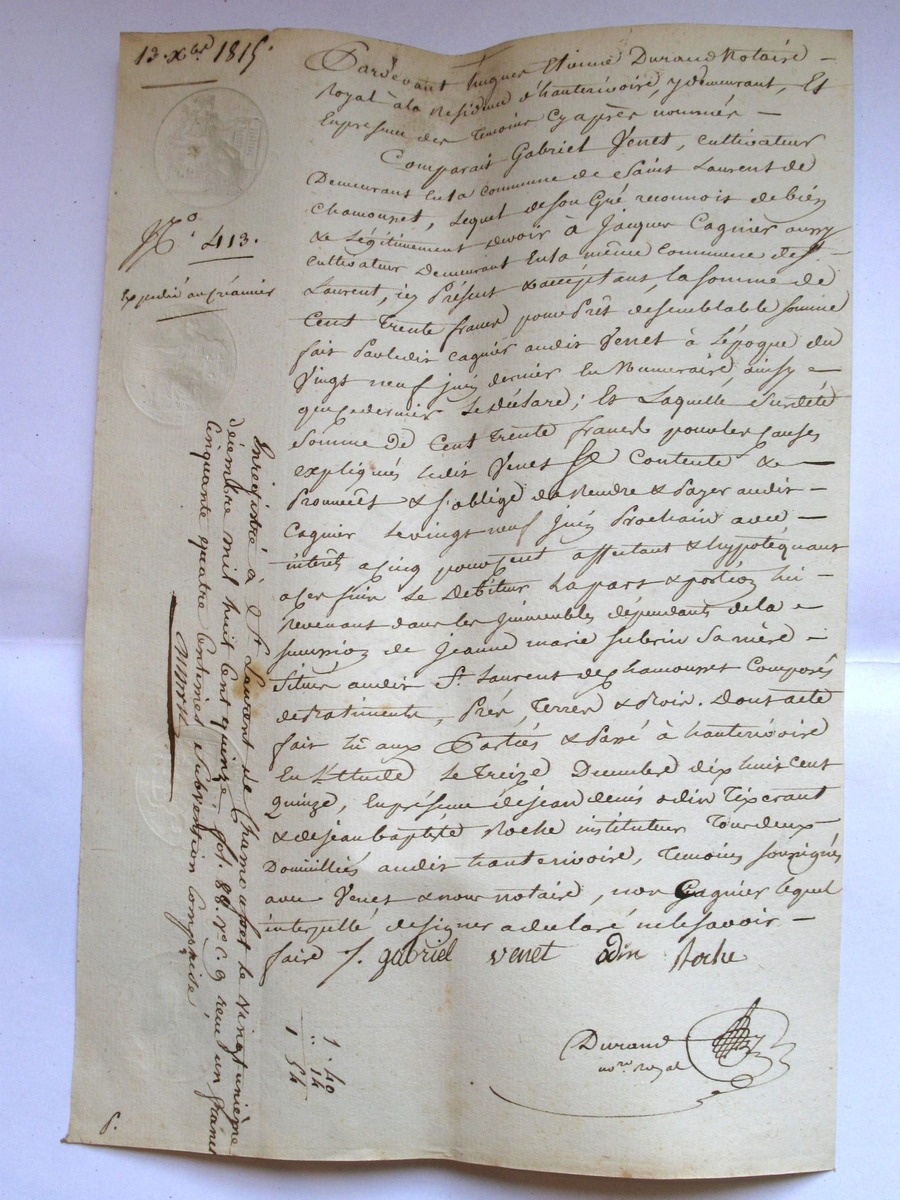 13. Xbre 1815.
No. 413.
Expedié au créancier
Pardevant hugues Etienne Durand Notaire
Royal à la Residence d'hauterivoire, y demeurant, Et
En presence des temoins cy après nommés
Comparait Gabriel Venet, cultivateur
Demeurant En la commune de Saint Laurent de
Chamousset, lequel de son Gré reconnois de bien
& Légitimement devoir à Jacques Cagnier aussy
cultivateur Demeurant En la même commune de St.
Laurent, icy Présent & acceptant, la somme de
Cent Trente francs pour Prêt de semblable somme
fait Par ledit Cagnier audit Venet à L'époque du
Vingt neuf juin dernier En Numeraire, ainsy
que ce dernier Le déclare; Et Laquelle Surdité
Somme de Cent trente francs pour les causes
expliqués Ledit Venet Contente &
Promet & s'oblige de Rendre & Payer audit
Cagnier Le vingt neuf juin Prochain avec
intérêt a cinq pour cent affectant & hypotéquant
a ces fins Le Débiteur La part & portion lui
Revenant dans les immeubles dépendants de la
succession de Jeanne marie Subrin Sa mère
Situés audit St. Laurent de Chamousset Composés
de Batiments, Prés, Terres & Bois. Dont acte
fait Lu aux Parties & Passé à hauterivoire
En L'Etude Le Treize Decembre dix huit cent
Quinze, En presence de jean denis odin Tixerant
& de jean baptiste Roche instituteur Tous deux
Domiciliés audit hauterivoire, Temoins soussignés
avec Venet & nous notaire, non Cagnier lequel
interpellé de signer a declaré ne le savoir
faire J. gabriel venet odin Roche
Durand
nore Royal
Enregistré à St. Laurent de Chamousset le vingt unième
décembre mil huit cent quinze, fol. 88. Vo. C. 9 reçu un franc
Cinquante quatre Centimes Subvention Comprise.
1. 40
.. 14
1 54